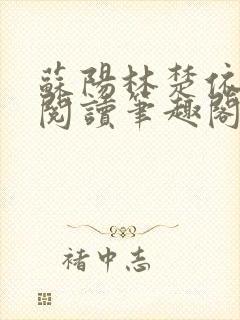 蘇陽林楚依
閱讀筆趣閣
褚中志